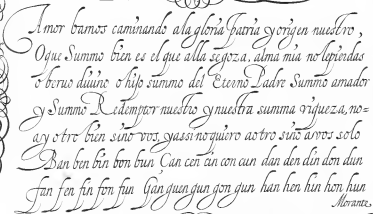 Amor bamos caminando ala gloria patria y origen nuestro,
O que Summo bien es el que alla se goza, alma mia no le pierdas
o beruo diuino o hijo summo del Eterno Padre Summo amador
y Summo Redemptor nuestro y nuestra summa riqueza, no=
ay otro bien sino vos, y assi no quiero a otro sino a vos solo
Ban ben bin bon bun Can cen cin con cun dan den din don dun
fan fen fin fon fun Gan guen guin gon gun han hen hin hon hun
Morante